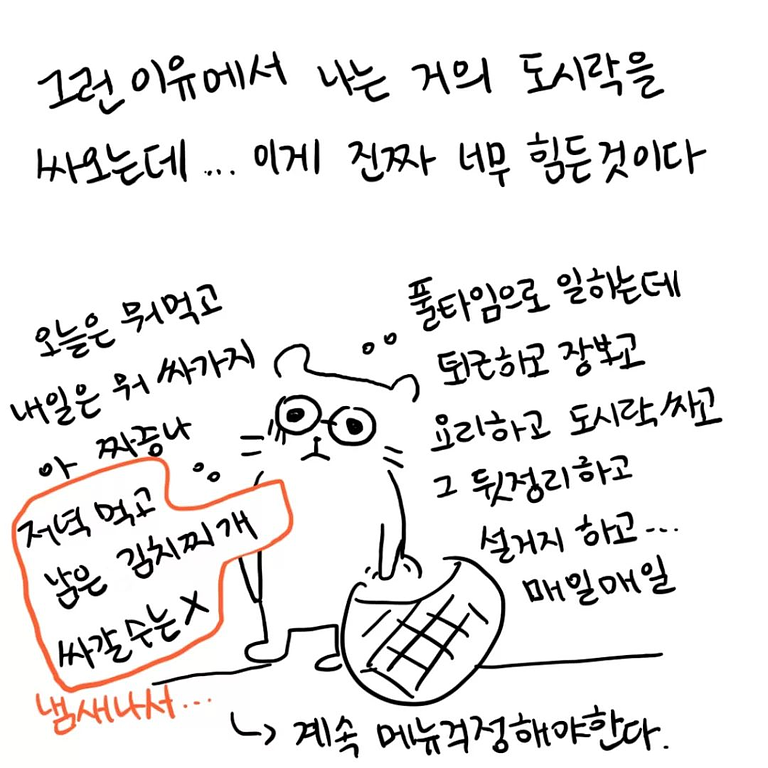 그런 이유에서 나는 거의 도시락을
싸오는데... 이게 진짜 너무 힘든것이다
오늘은 뭐먹고
내일은 뭐 싸가지
아 짜증나
저녁 먹고
남은 김치찌개
싸갈수는 X
냄새나서...
풀타임으로 일하는데
퇴근하고 장보고
요리하고 도시락싸고
그 뒷정리하고
설거지 하고...
매일매일
↳ 계속 메뉴걱정해야한다.